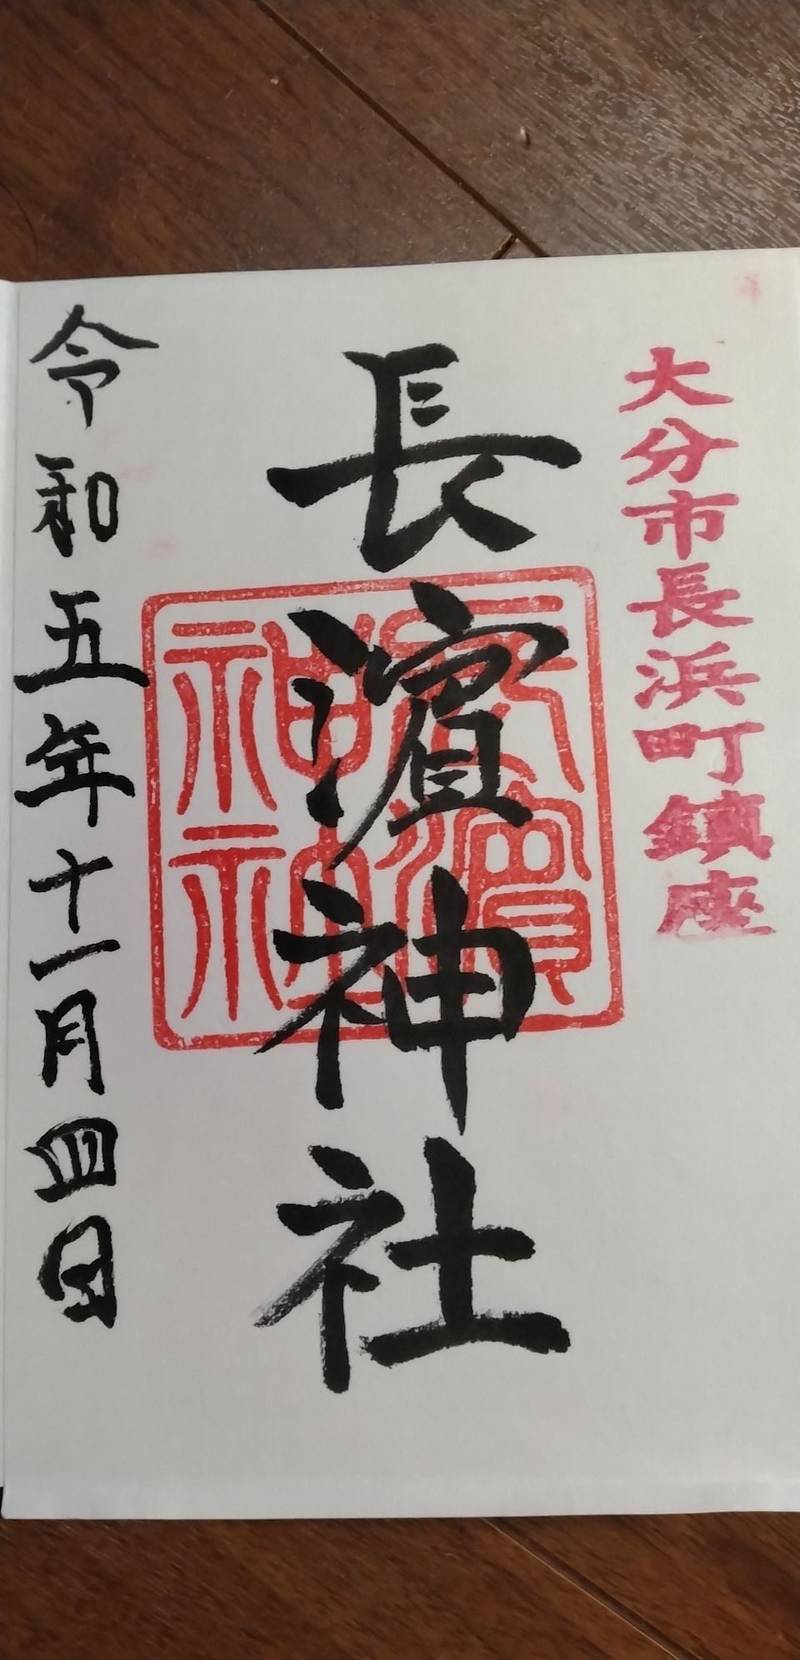 大分市長浜町鎮座
長濵神社
長濱神社
令和五年十一月四日